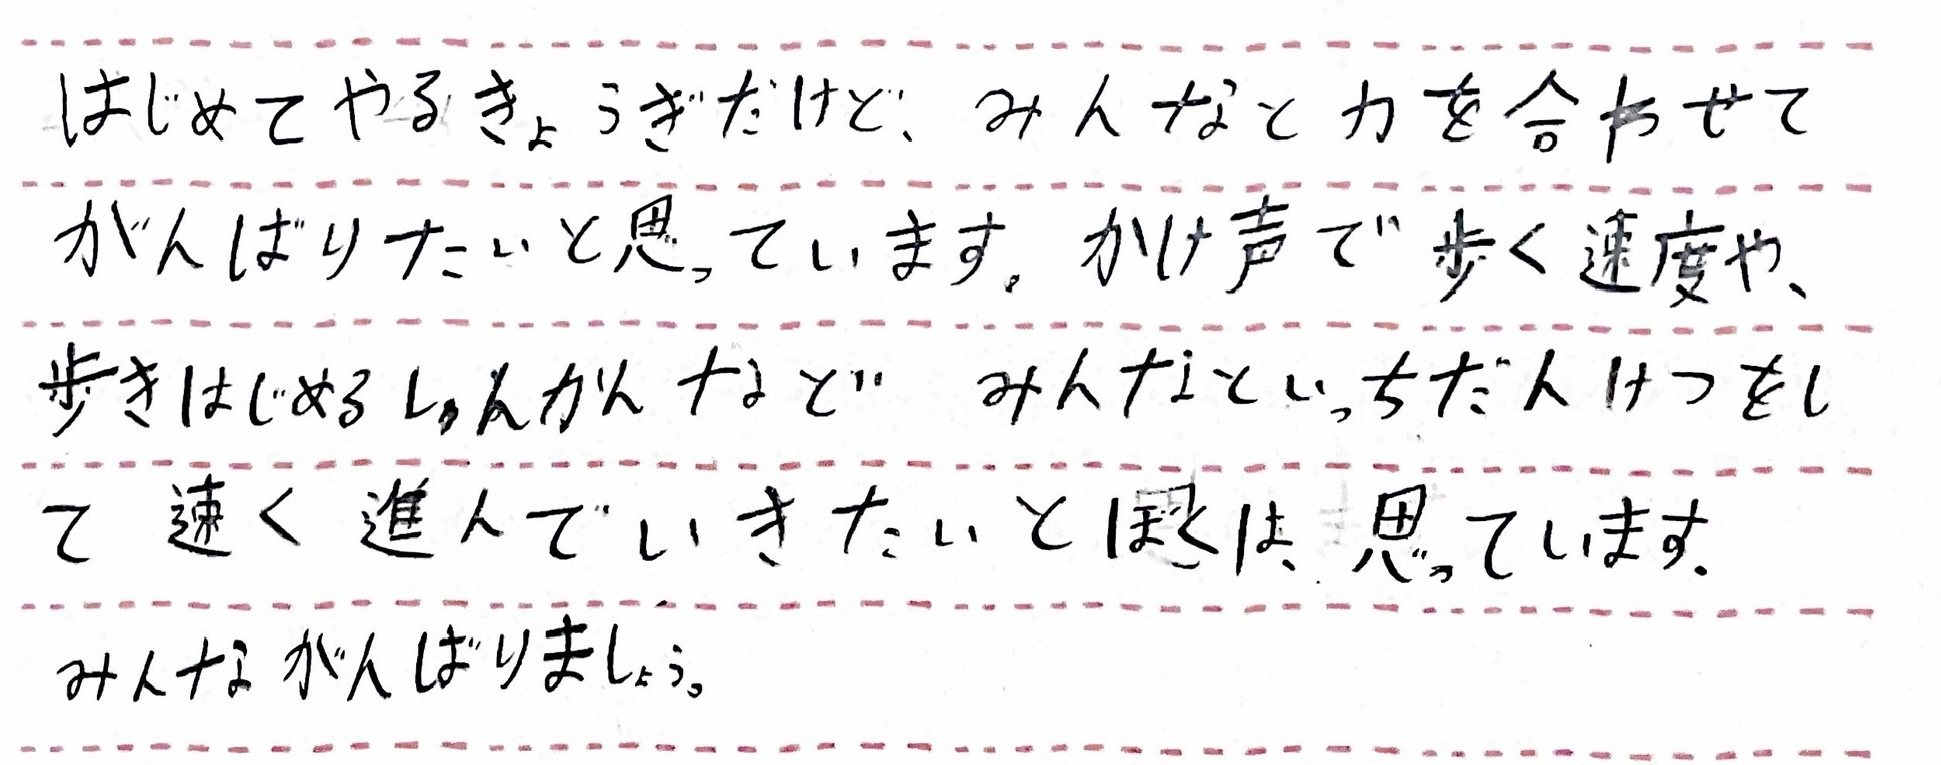 はじめてやるきょうぎだけど、みんなと力を合わせて
がんばりたいと思っています。かけ声で歩く速度や、
歩きはじめるしゅんかんなど みんなといっちだんけつをし
て速く進んでいきたいとぼくは、思っています。
みんながんばりましょう。